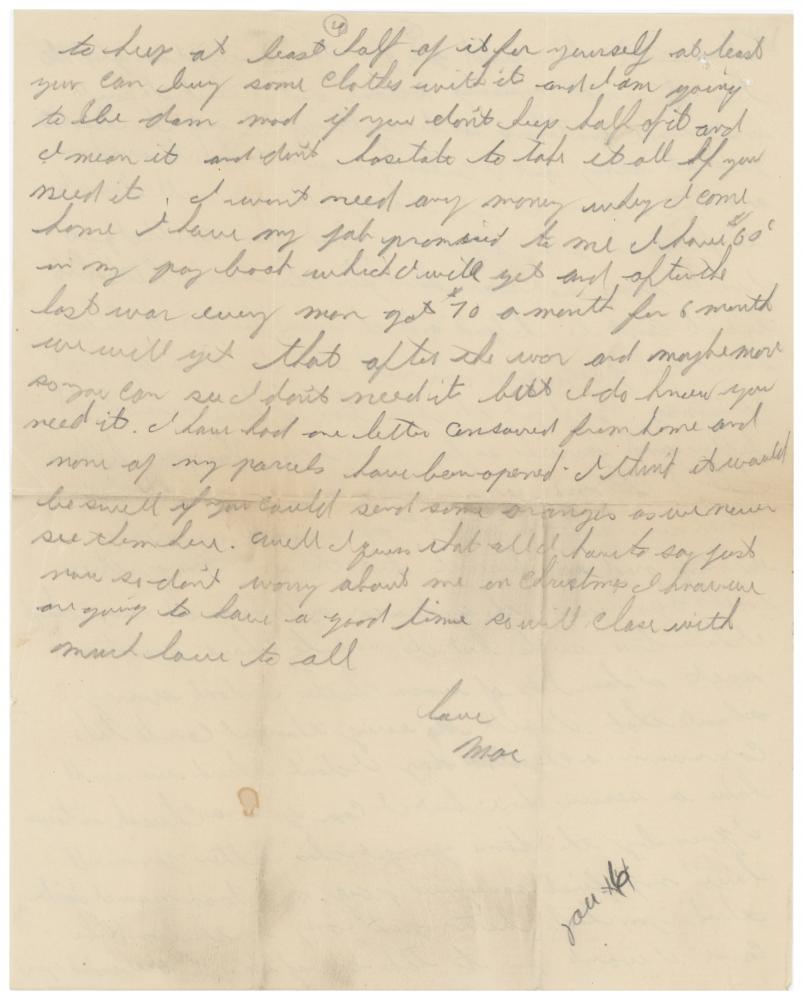 4
to keep at least half of it for yourself at least
you can buy some clothes with it and I am going
to be dam mad if you don't keep half of it and
I mean it and don't hasitate to take it all If you
need it. I won't need any money when I come
home I have my job promised to me I have $60
in my pay book which I will get and after the
last war every man got $70 a month for 6 month
we will get that after the war and maybe more
so you can see I don't need it but I do know you
need it. I have had one letter censored from home and
none of my parcels have been opened. I think it would
be swell if you could send some oranges as we never
see them here. Well I guess that all I have to say just
now so don't worry about me on Christmas I know we
are going to have a good time so will close with
much love to all
love
Mac
Jan